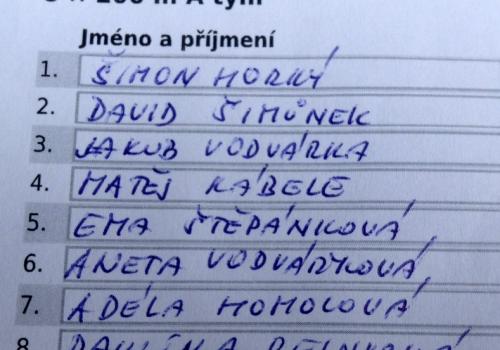 200 m A tým
Jméno a příjmení
1. ŠIMON HORKÝ
2. DAVID ŠIMŮNEK
3. JAKUB VODVÁRKA
4. MATĚJ KÁBELE
5. EMA ŠTĚPÁNKOVÁ
6. ANETA VODVÁRKOVÁ
7. ADÉLA HOMOLOVÁ
8.